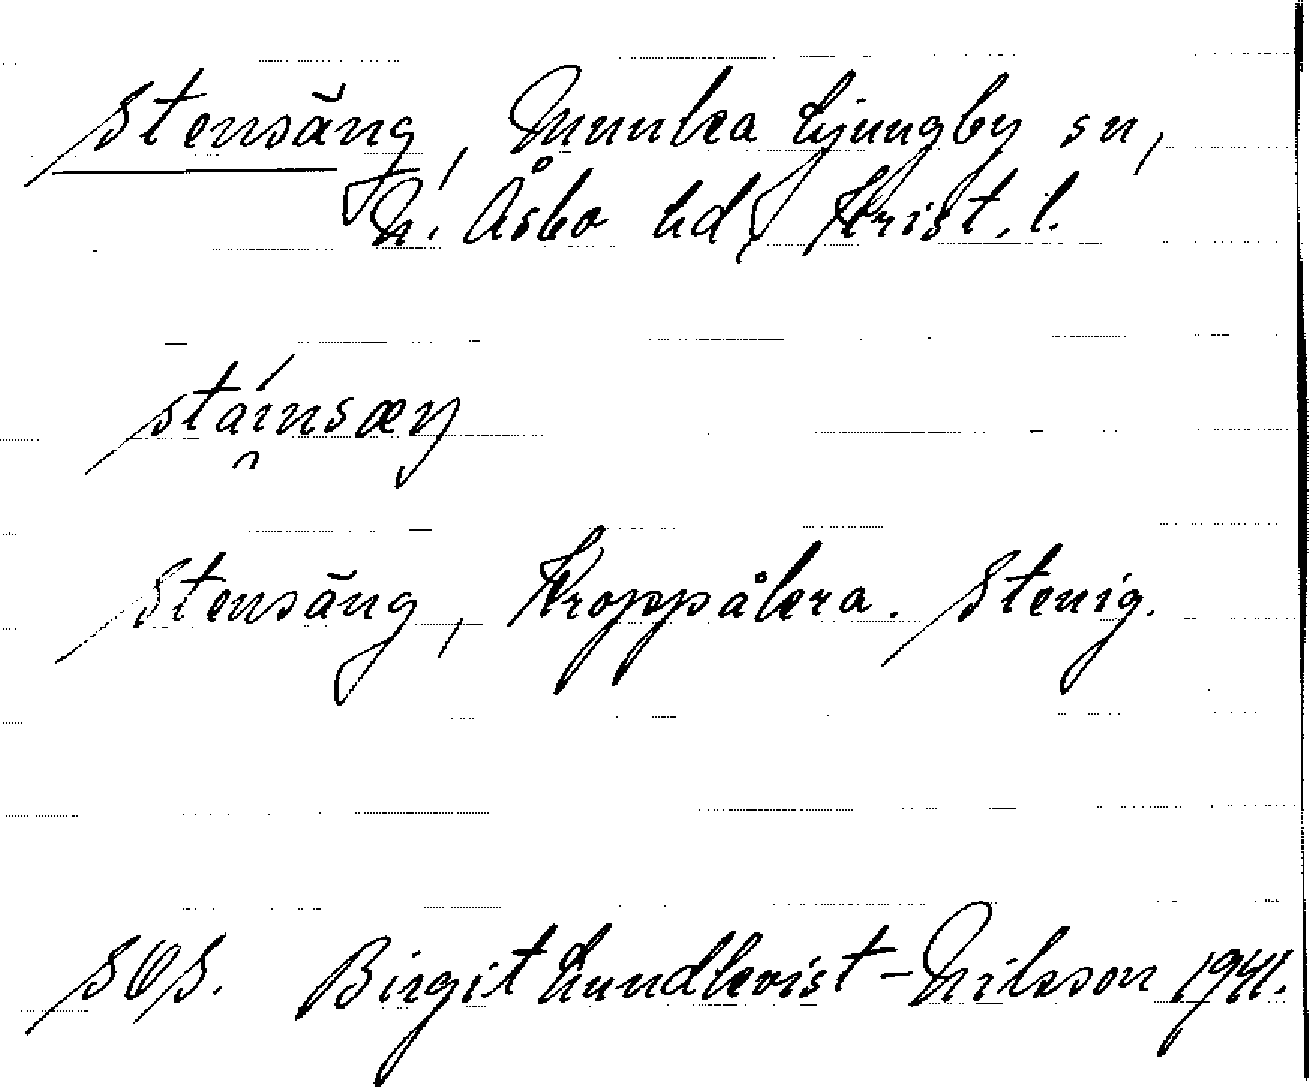 Stensäng, Munka Ljungby sn,
N. Åsbo hd, Krist. l.
stáinsæŋ
Stensäng, Kroppåkra. Stenig.
SOS. Birgit Lundkvist-Nilsson 1941.